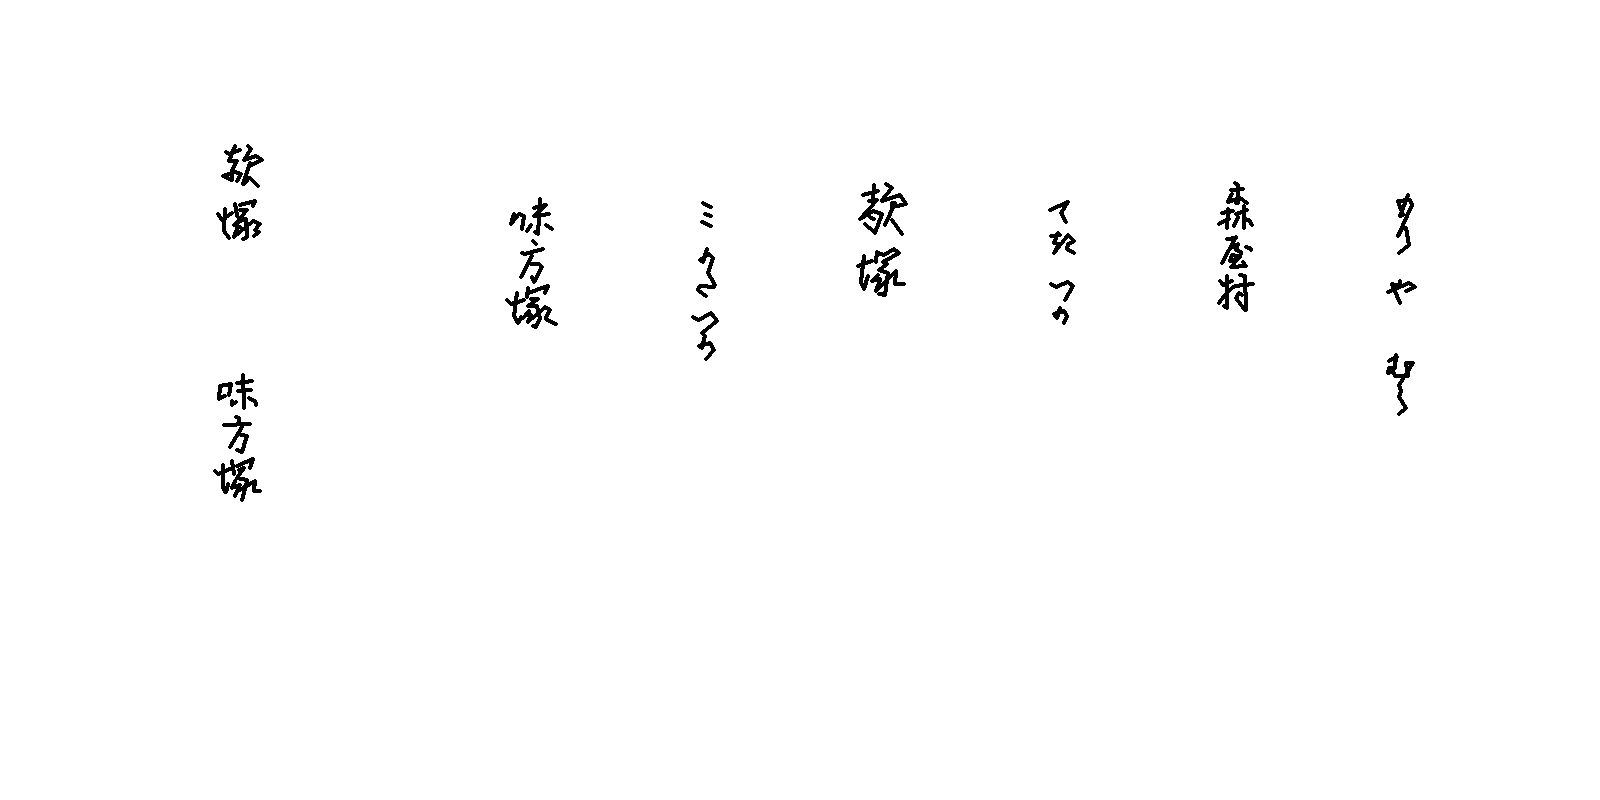 もりやむら
森屋村
てきつか
歒塚
ミかたつか
味方塚
歒塚 味方塚